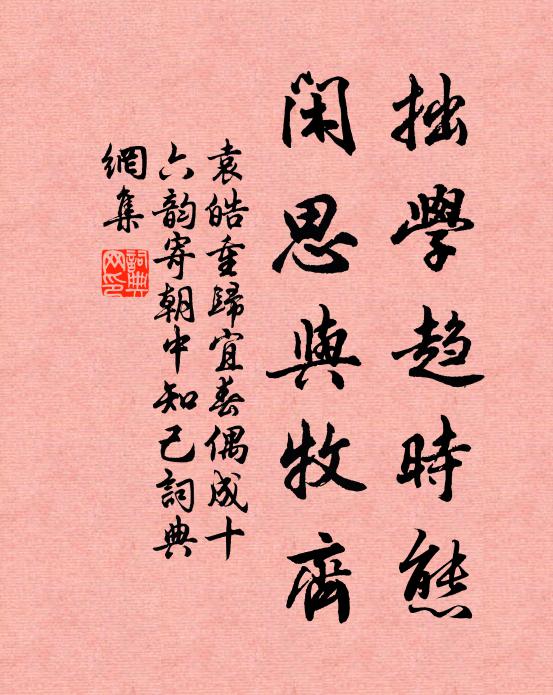 拙學趨時態
閑思與牧齊
袁皓重歸宜春偶成十
六韵寄朝中知己詞典
網集
詞典
网印